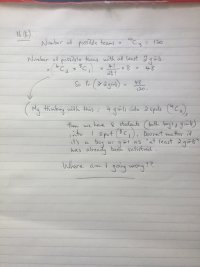 Number of possible teams = ¹⁰C₃ = 120
Number of possible teams with at least 2 girls
= (⁴C₂ × ⁸C₁) = 4!/2!2! × 8 = 48
So Pr (≥ 2 girls) = 48/120
(My thinking with this: 4 girls into 2 spots (⁴C₂),
then we have 8 students (both boys, girls)
into 1 spot (⁸C₁), doesn't matter if
it's a boy or girl as "at least 2 girls"
was already been satisfied
Where am I going wrong??